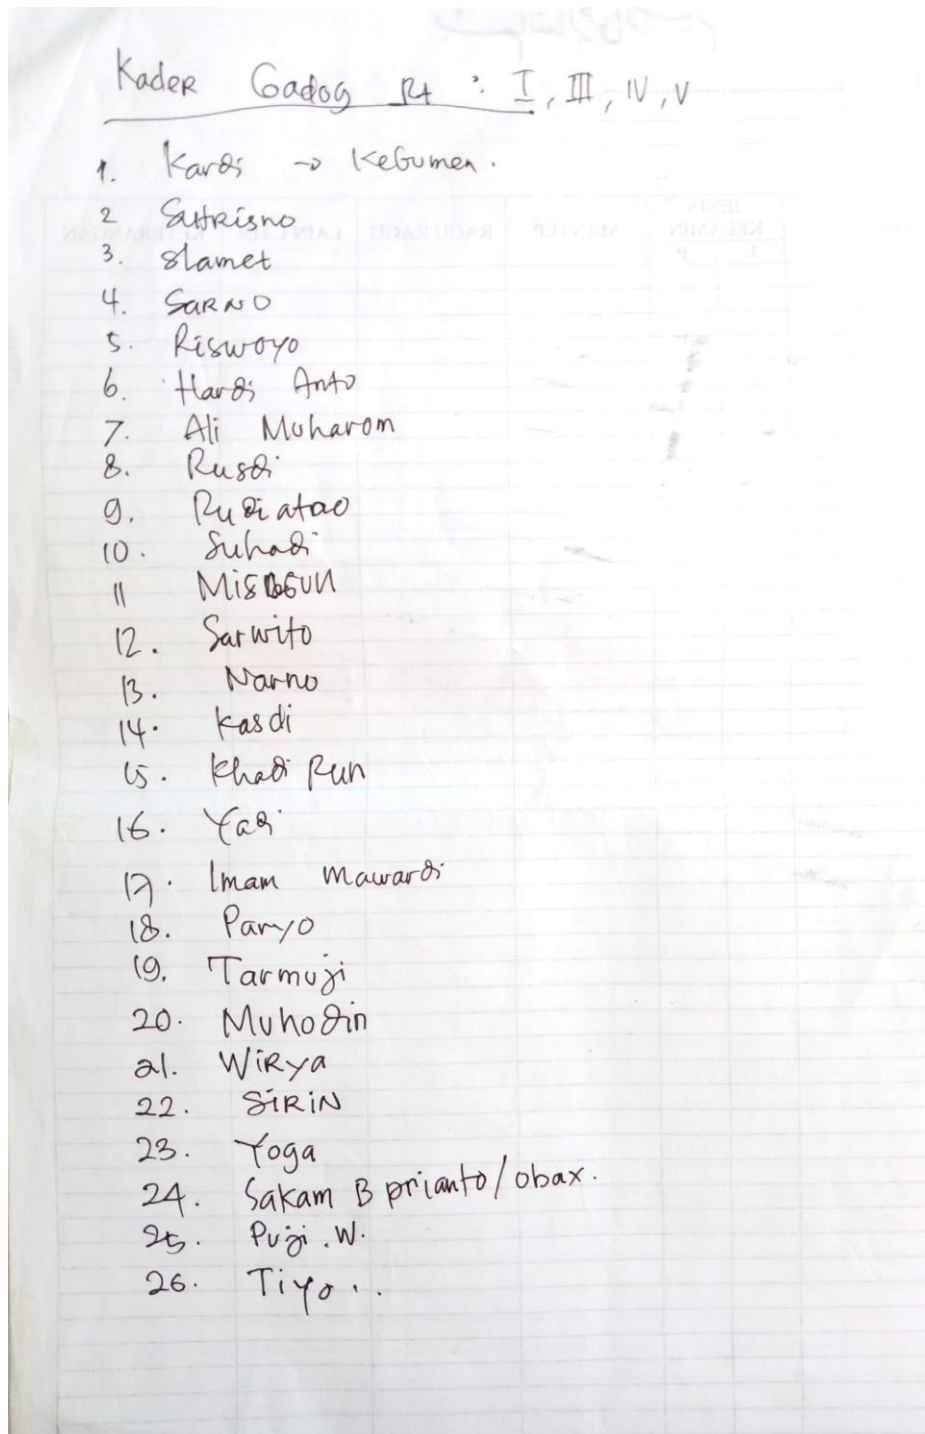 Kader Gadog Rt : I, III, IV, V
1. Kardi → Kebumen.
2 Sutrisno
3. Slamet
4. SARNO
5. Riswoyo
6. Hardi Anto
7. Ali Muharom
8. Rusdi
9. Rudiatao
10. Suhadi
11 Misbsun
12. Sarwito
13. Narno
14. Kasdi
15. Khadi Run
16. Yadi
17. Imam Mawardi
18. Paryo
19. Tarmuji
20. Muhodin
21. WiRya
22. SiRiN
23. Yoga
24. Sakam B prianto/obax.
25. Puji . W.
26. Tiyo . .
JENIS KELAMIN
L P
MANTEP
RAGU RAGU
LAIN LAIN
KETERANGAN